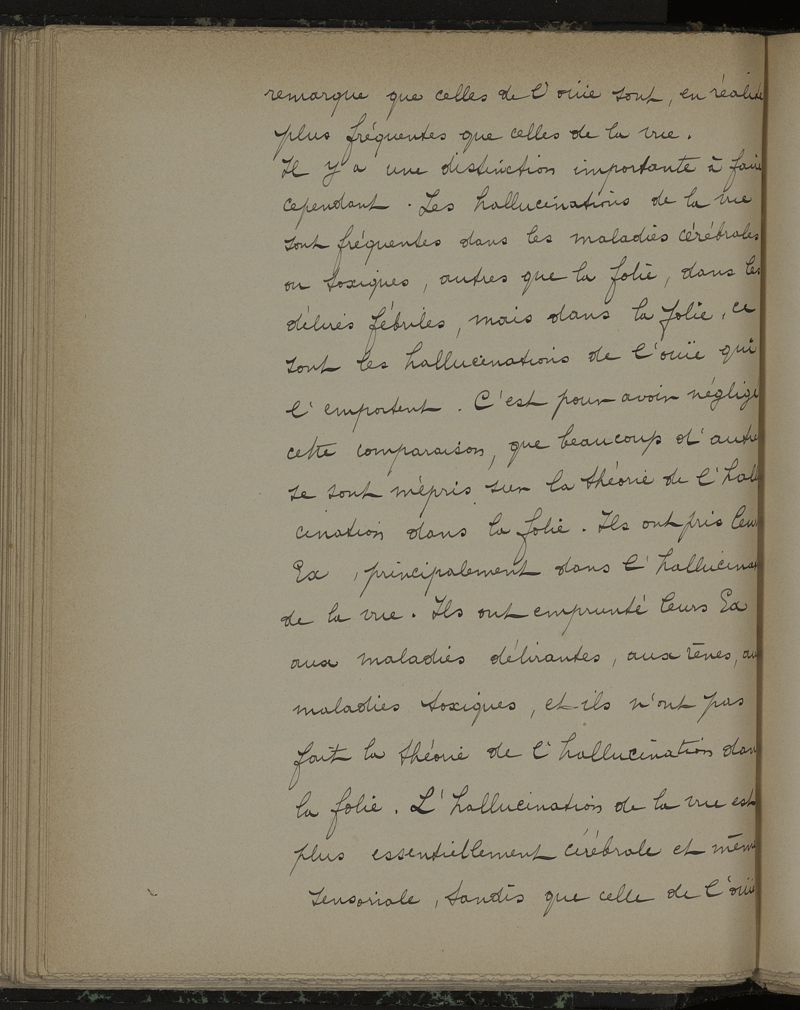 remarque que celles de l'ouïe sont, en réalité
plus fréquentes que celles de la vue.
Il y a une distinction importante à faire
cependant. Les hallucinations de la vue
sont fréquentes dans les maladies cérébrales
ou toxiques, autres que la folie, dans les
délires fébriles, mais dans la folie, ce
sont les hallucinations de l'ouïe qui
l'emportent. C'est pour avoir néglige
cette comparaison, que beaucoup d'autre
se sont mépris sur la théorie de l'hall
cination dans la folie. Ils ont pris leur
Ex, principalement dans l'hallucinat
de la vue. Ils ont emprunté leurs Ex
aux maladies délirantes, aux rêves, au
maladies toxiques, et ils n'ont pas
fait la théorie de l'hallucination dan
la folie. L'hallucination de la vue est
plus essentiellement cérébrale et mêm
sensoriale, tandis que celle de l'ouïe